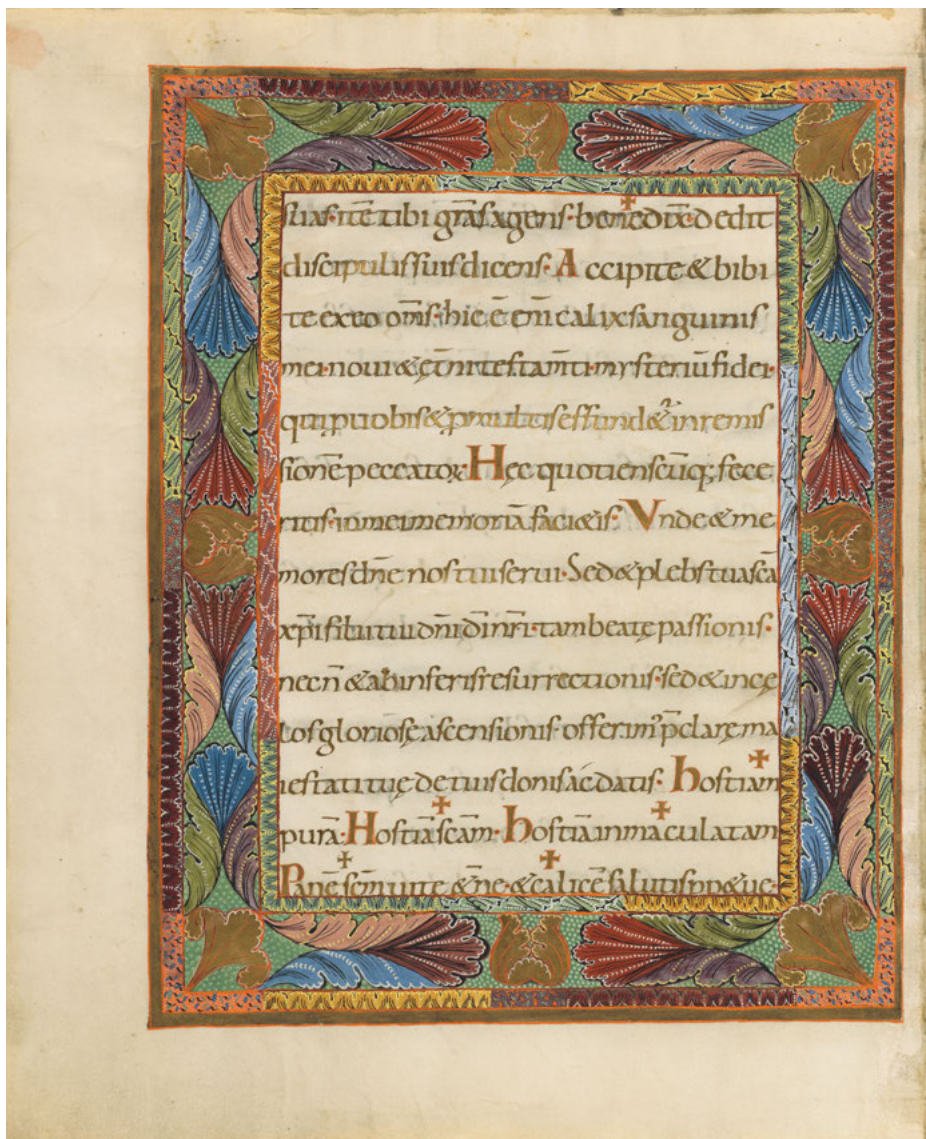 suas· itē tibi gr̄as agens· bened̄ix̄· dedit
discipulis suis dicens· Accipite & bibi
te ex eo om̄s· hic ē em̄ calix sanguinis
mei· noui & ęt̄ni testam̄ti· mysteriū fidei·
qui p uobis & p̱ multis effund&ᷣ in remis
sionē peccatoꝝ· Hęc quotienscūq; fece
ritis· in mei memoriā faci&is· Vnde & me
mores dn̄e nos tui serui· Sed & plebs tua sc̄a
xp̄i filii tui dn̄i dī nr̄i· tam beatę passionis·
necn̄ & ab inferis resurrectionis· sed & in cę
los gloriosę ascensionis· offerim᾽ p̄clarę ma
iestati tuę de tuis donis ac datis· hostiam
purā· Hostiā sc̄am· hostiā inmaculatam
Panē sc̄m uitę & ̄ne· & calicē salutis pp&uę·